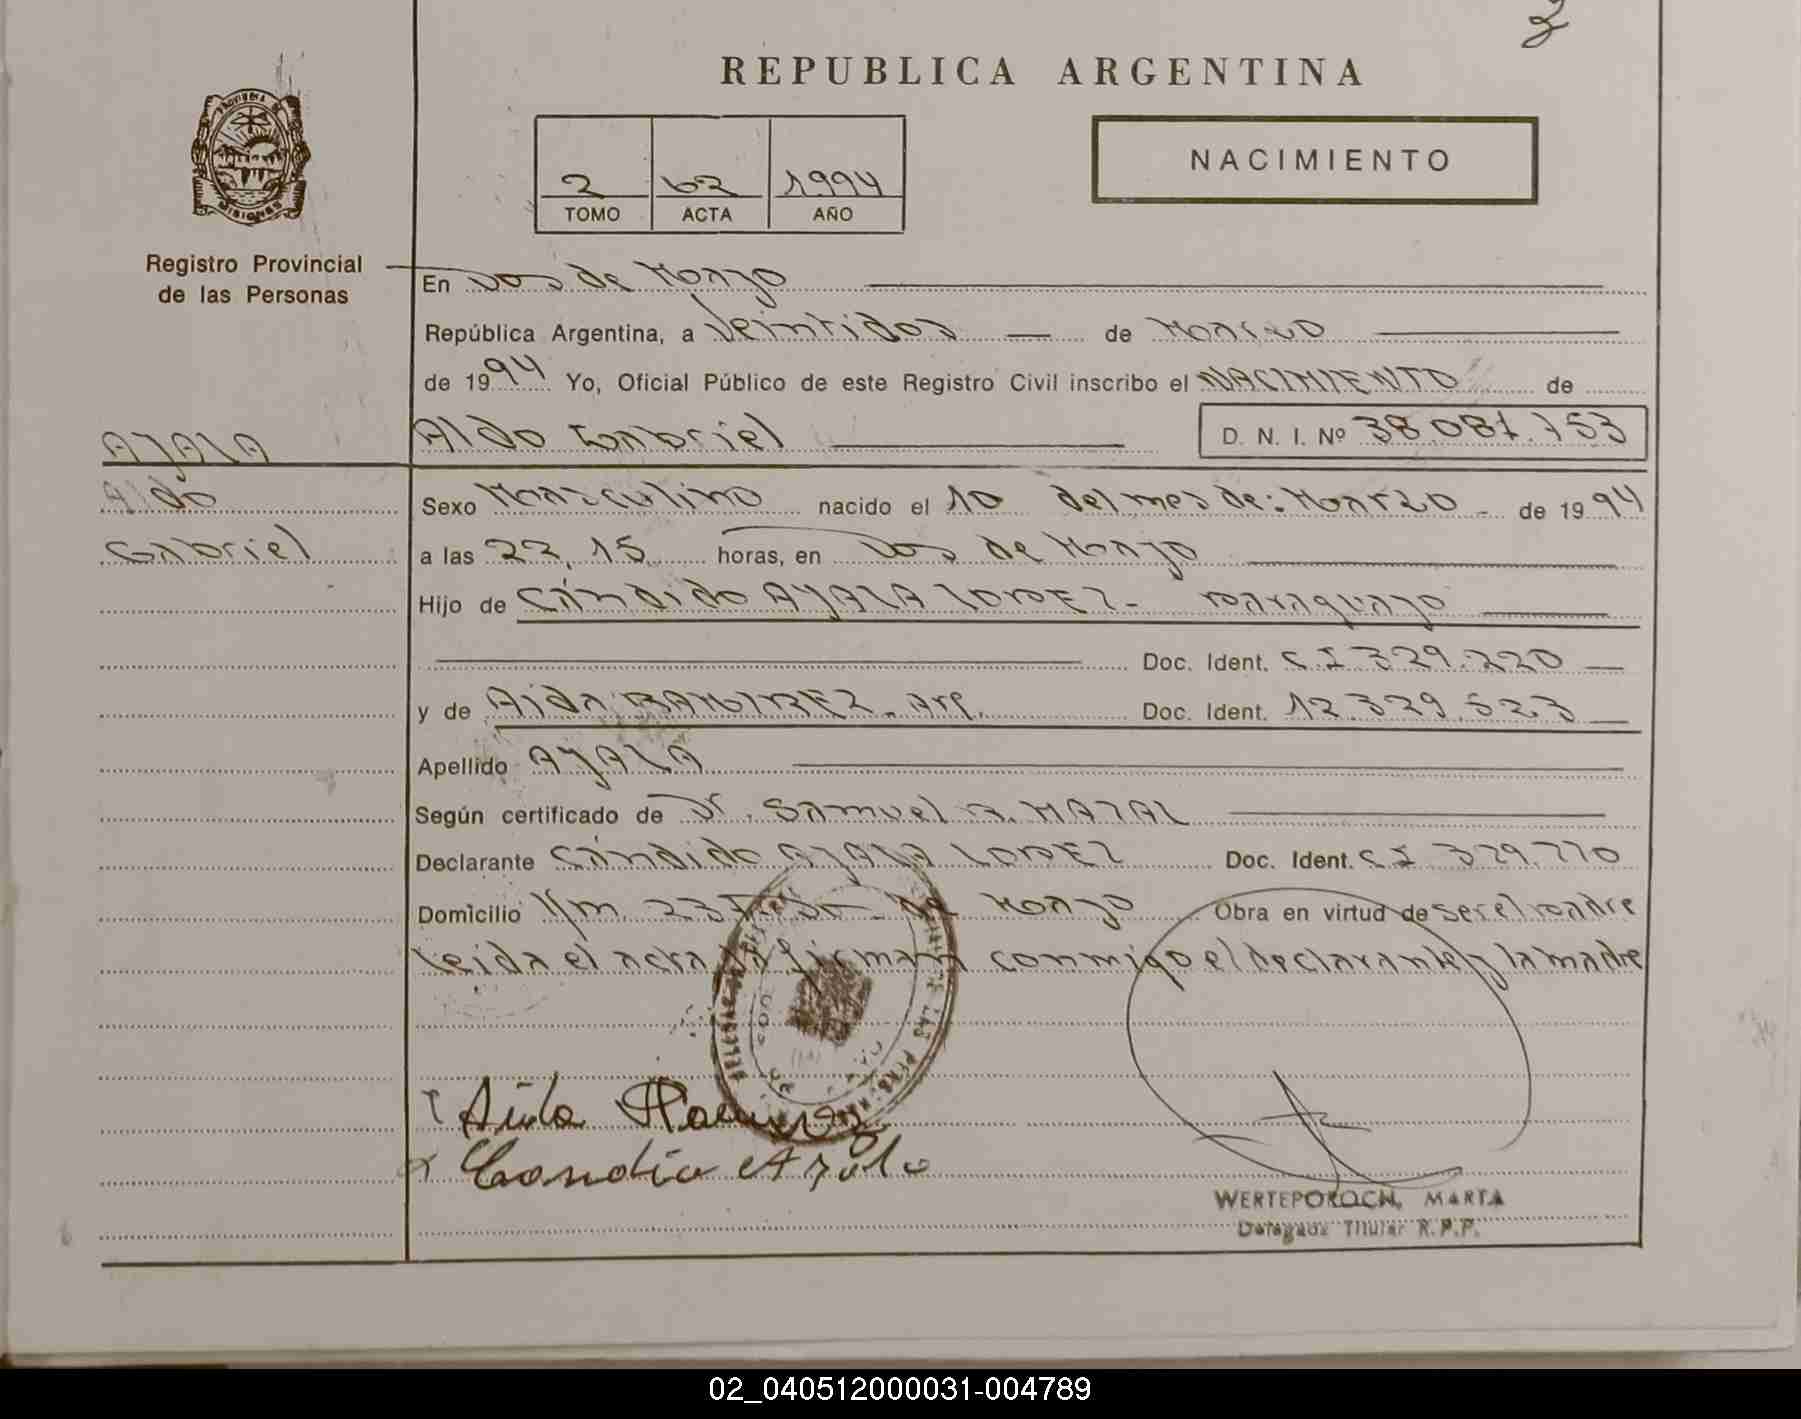 2
REPUBLICA ARGENTINA
PROVINCIA DE
MISIONES
2 62 1994
TOMO ACTA AÑO
NACIMIENTO
Registro Provincial
de las Personas
En Dos de Mayo
República Argentina, a Veintidos de Marzo
de 1994 Yo, Oficial Público de este Registro Civil inscribo el NACIMIENTO de
AYALA
Aldo Gabriel D. N. I. Nº 38.087.753
Aldo
Gabriel
Sexo Masculino nacido el 10 del mes de: Marzo - de 1994
a las 22,15 horas, en Dos de Mayo
Hijo de Cándido AYALA LOPEZ - paraguayo
Doc. Ident. C I 329.220
y de Aida RAMIREZ - Arg. Doc. Ident. 12.329.523
Apellido AYALA
Según certificado de Dr. Samuel MAZAL
Declarante Cándido AYALA LOPEZ Doc. Ident. C I 329.220
Domicilio Km 237 Dos de Mayo Obra en virtud de ser el padre
Leida el acta la firman conmigo el declarante y la madre
Aida Ramirez
Candio Ayala
WERTEPOROCH, MARTA
Delegada Titular R.P.P.
02_040512000031-004789